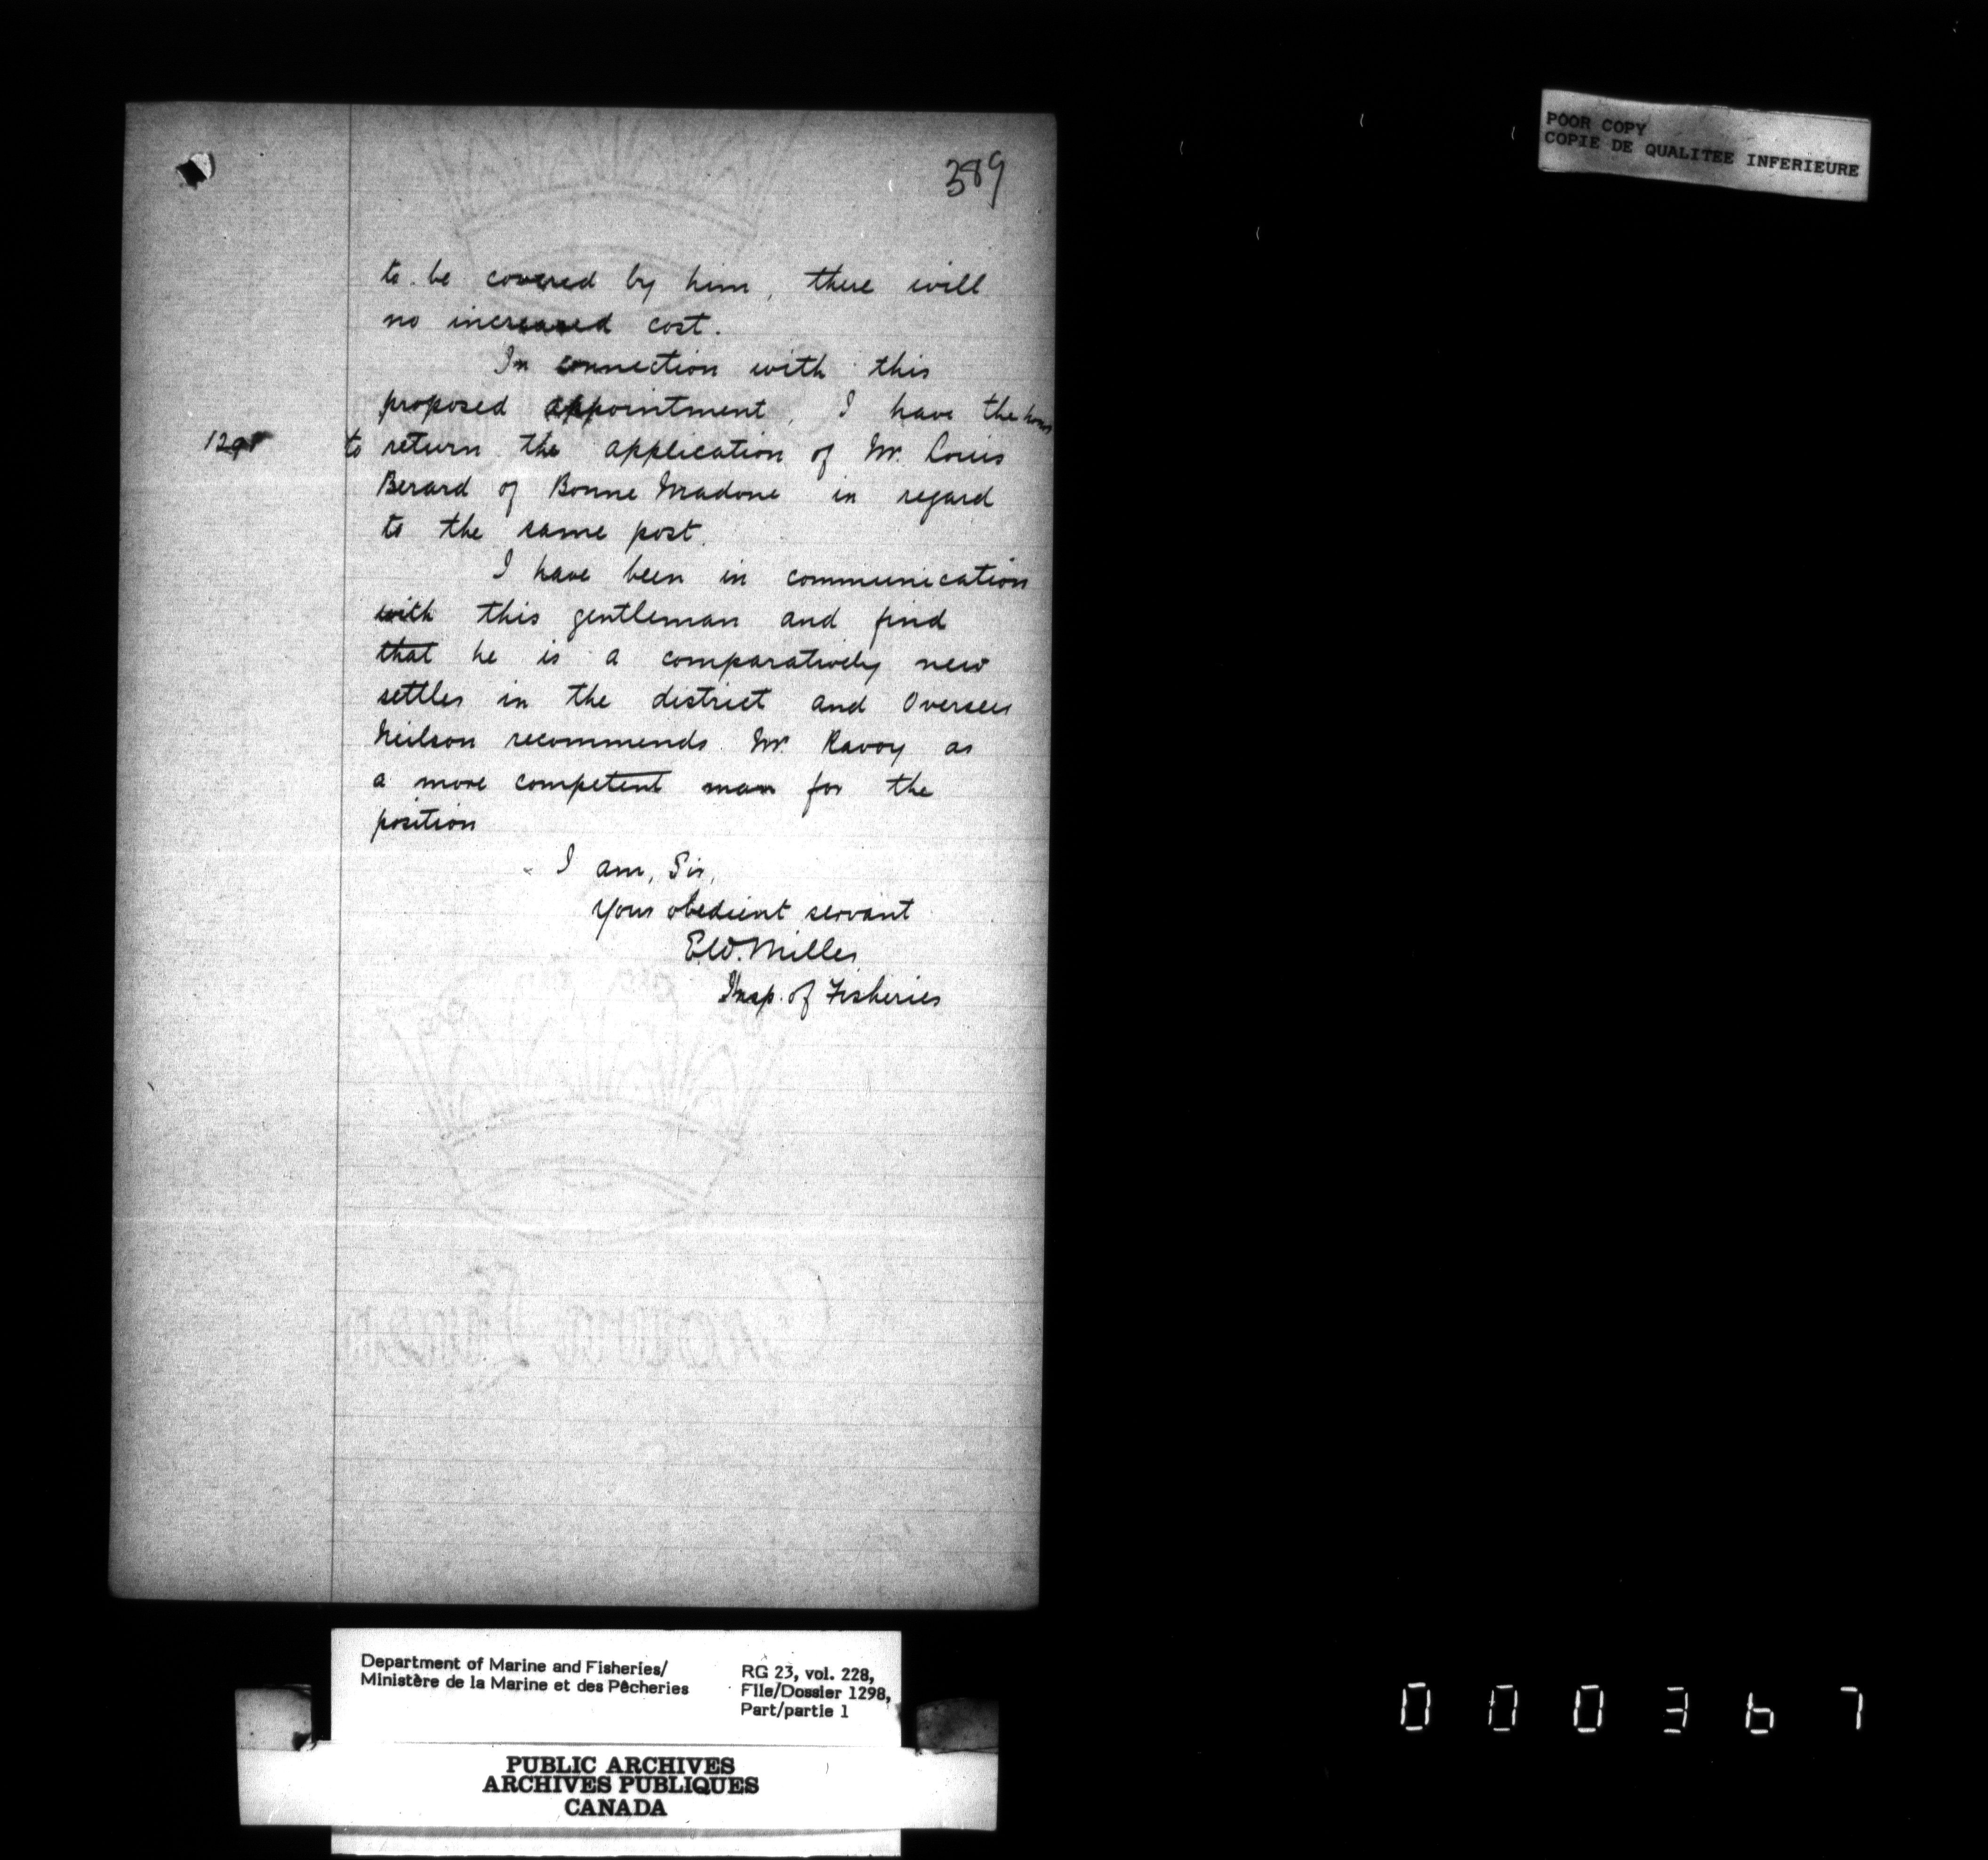 389
to be covered by him, there will
no increased cost.
In connection with this
proposed appointment, I have the honor
to return the application of Mr. Louis
Berard of Bonne Madone in regard
to the same post.
I have been in communication
with this gentleman and find
that he is a comparatively new
settler in the district and Overseer
Neilson recommends Mr. Ravoy as
a more competent man for the
position
I am, Sir,
Your obedient servant
E.W. Miller
Insp. of Fisheries
Crown Linen
POOR COPY
COPIE DE QUALITEE INFERIEURE
Department of Marine and Fisheries/
Ministère de la Marine et des Pêcheries
RG 23, vol. 228,
File/Dossier 1298,
Part/partie 1
PUBLIC ARCHIVES
ARCHIVES PUBLIQUES
CANADA
000367